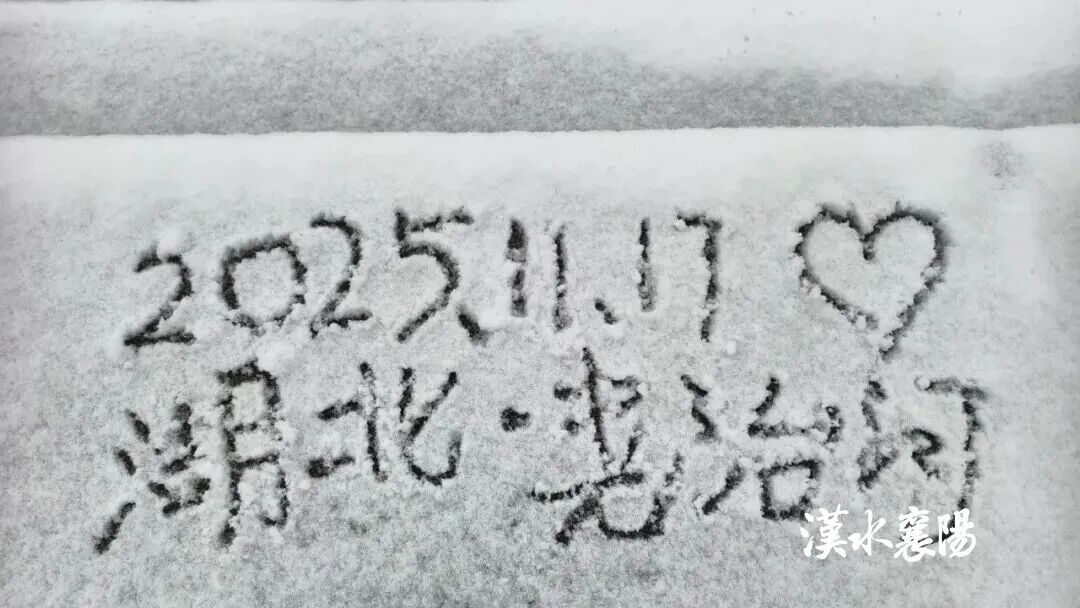 2025.11.17 ♡
湖北·尧治河
漢水襄陽